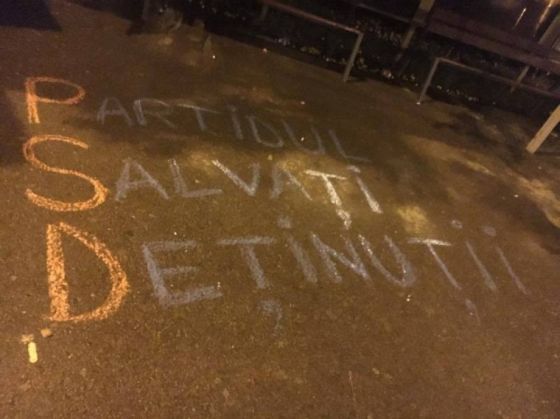 PARTIDUL
SALVAȚI
DEȚINUȚII